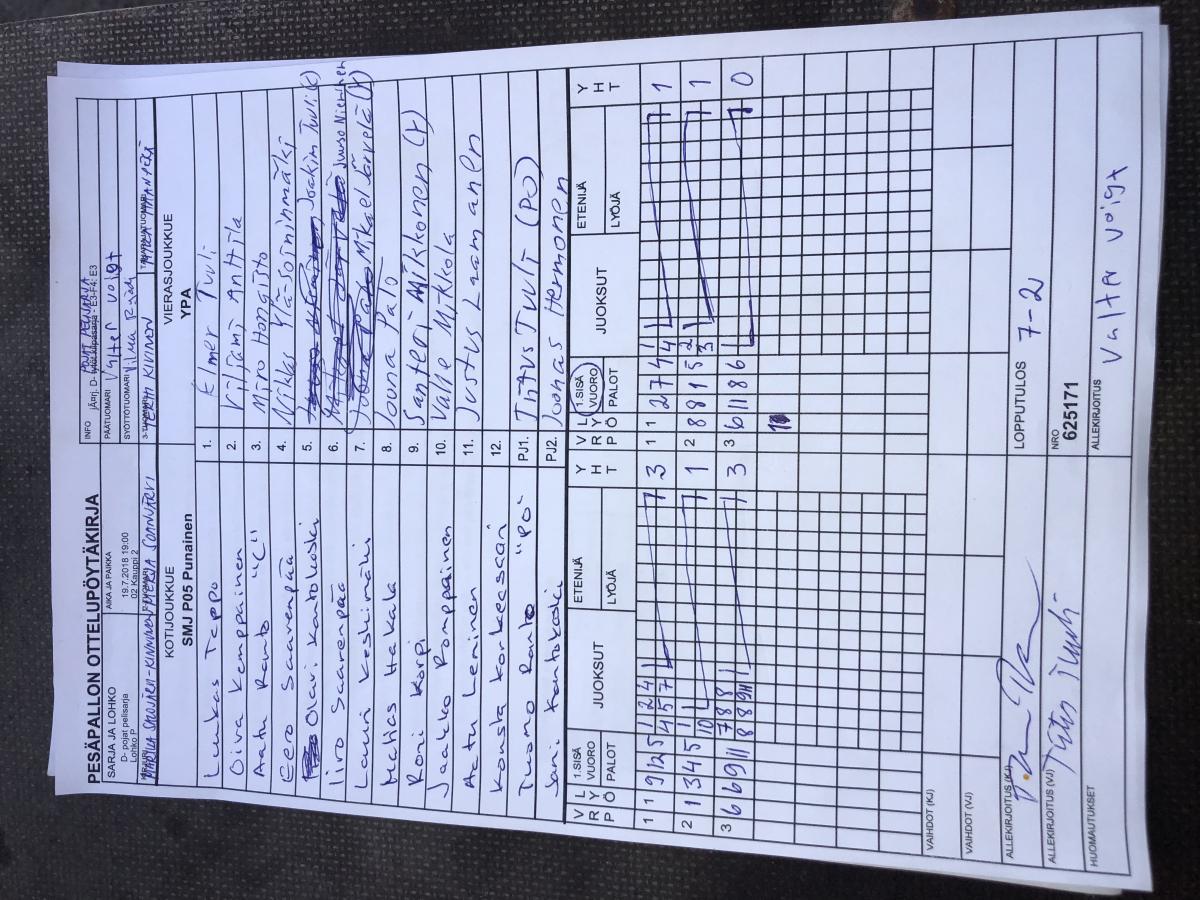 PESÄPALLON OTTELUPÖYTÄKIRJA
SARJA JA LOHKO
D- pojat pelisarja
Lohko P
AIKA JA PAIKKA
19.7.2018 19:00
02 Kauppi 2
INFO
POJAT PELISARJA
Järj. D- tytöt kilpasarja - E3-F4: E3
PÄÄTUOMARI Valter Voigt
SYÖTTÖTUOMARI
3-TUOMARI
KOTIJOUKKUE
SMJ P05 Punainen
VIERASJOUKKUE
YPA
Luukas Teppo
Oiva Kemppainen
Aatu Ranto "C"
Eero Saarenpää
Olavi Kantokoski
Iiro Saarenpää
Lauri Keskimäki
Matias Hakala
Roni Korpi
Jaakko Romppainen
Aatu Leminen
Konsta Korkeesaari
Tuomo Ranto "PO"
Jani Kantokoski
1. Elmer Tuuli
2. Viljami Anttila
3. Miro Hongisto
4. Niklas Ylä-Soininmäki
5. Joakim Tuuli (c)
6. Juuso Nieminen
7. Mikael Järvelä (r)
8. Jouna Palo
9. Santeri Mikkonen (r)
10. Valle Mikkola
11. Justus Laamanen
12.
PJ1. Tiitus Tuuli (PO)
PJ2. Joonas Hermonen
V R P
L Y Ö
1.SISÄ VUORO
PALOT
JUOKSUT
ETENIJÄ
LYÖJÄ
Y H T
V R P
L Y Ö
1.SISÄ VUORO
PALOT
JUOKSUT
ETENIJÄ
LYÖJÄ
Y H T
1 1 9 12 5
1 2 4
4 5 7
3
1 1 2 7 4
1
4
1
2 1 3 4 5
1
10
1
2 8 8 1 5
2
3
1
3 6 6 9 11
7 8 8
8 9 11
3
3 6 11 8 6
0
VAIHDOT (KJ)
VAIHDOT (VJ)
ALLEKIRJOITUS (KJ)
LOPPUTULOS 7-2
ALLEKIRJOITUS (VJ)
Tiitus Tuuli
NRO
625171
HUOMAUTUKSET
ALLEKIRJOITUS
Valter Voigt